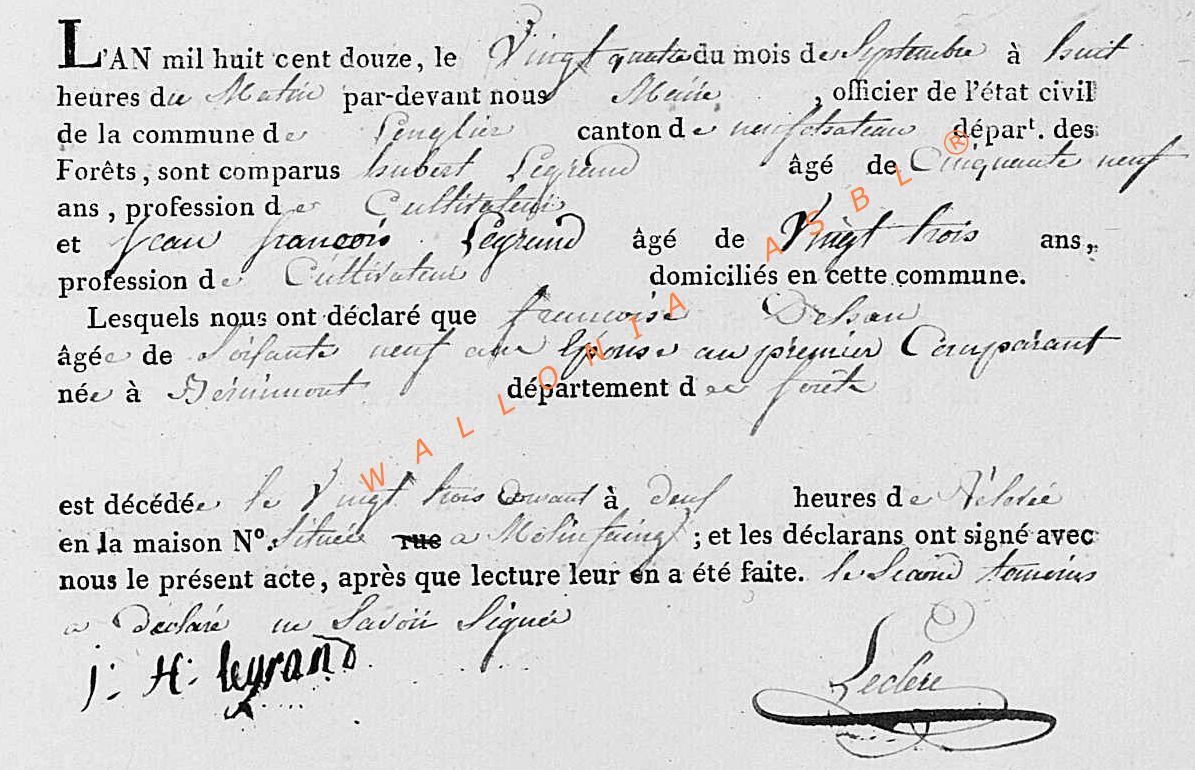 L'AN mil huit cent douze, le Vingt quatre du mois de Septembre à huit
heures du Matin par-devant nous Maire , officier de l'état civil
de la commune de Longlier canton de neufchateau dépar^t. des
Forêts, sont comparus hubert Legrand âgé de Cinquante neuf
ans, profession de Cultivateur
et Jean françois Legrand âgé de Vingt trois ans,
profession de Cultivateur domiciliés en cette commune.
Lesquels nous ont déclaré que francoise
âgée de Soixante neuf ans Epouse au premier Comparant
née à département des forêts
est décédée le Vingt trois Courant à deux heures de
en la maison N°. située rue a Molinfaing ; et les déclarans ont signé avec
nous le présent acte, après que lecture leur en a été faite. le Second temoins
a déclaré ne Savoir Signer
J: H: legrand
Leclere
WALLONIA ASBL ®